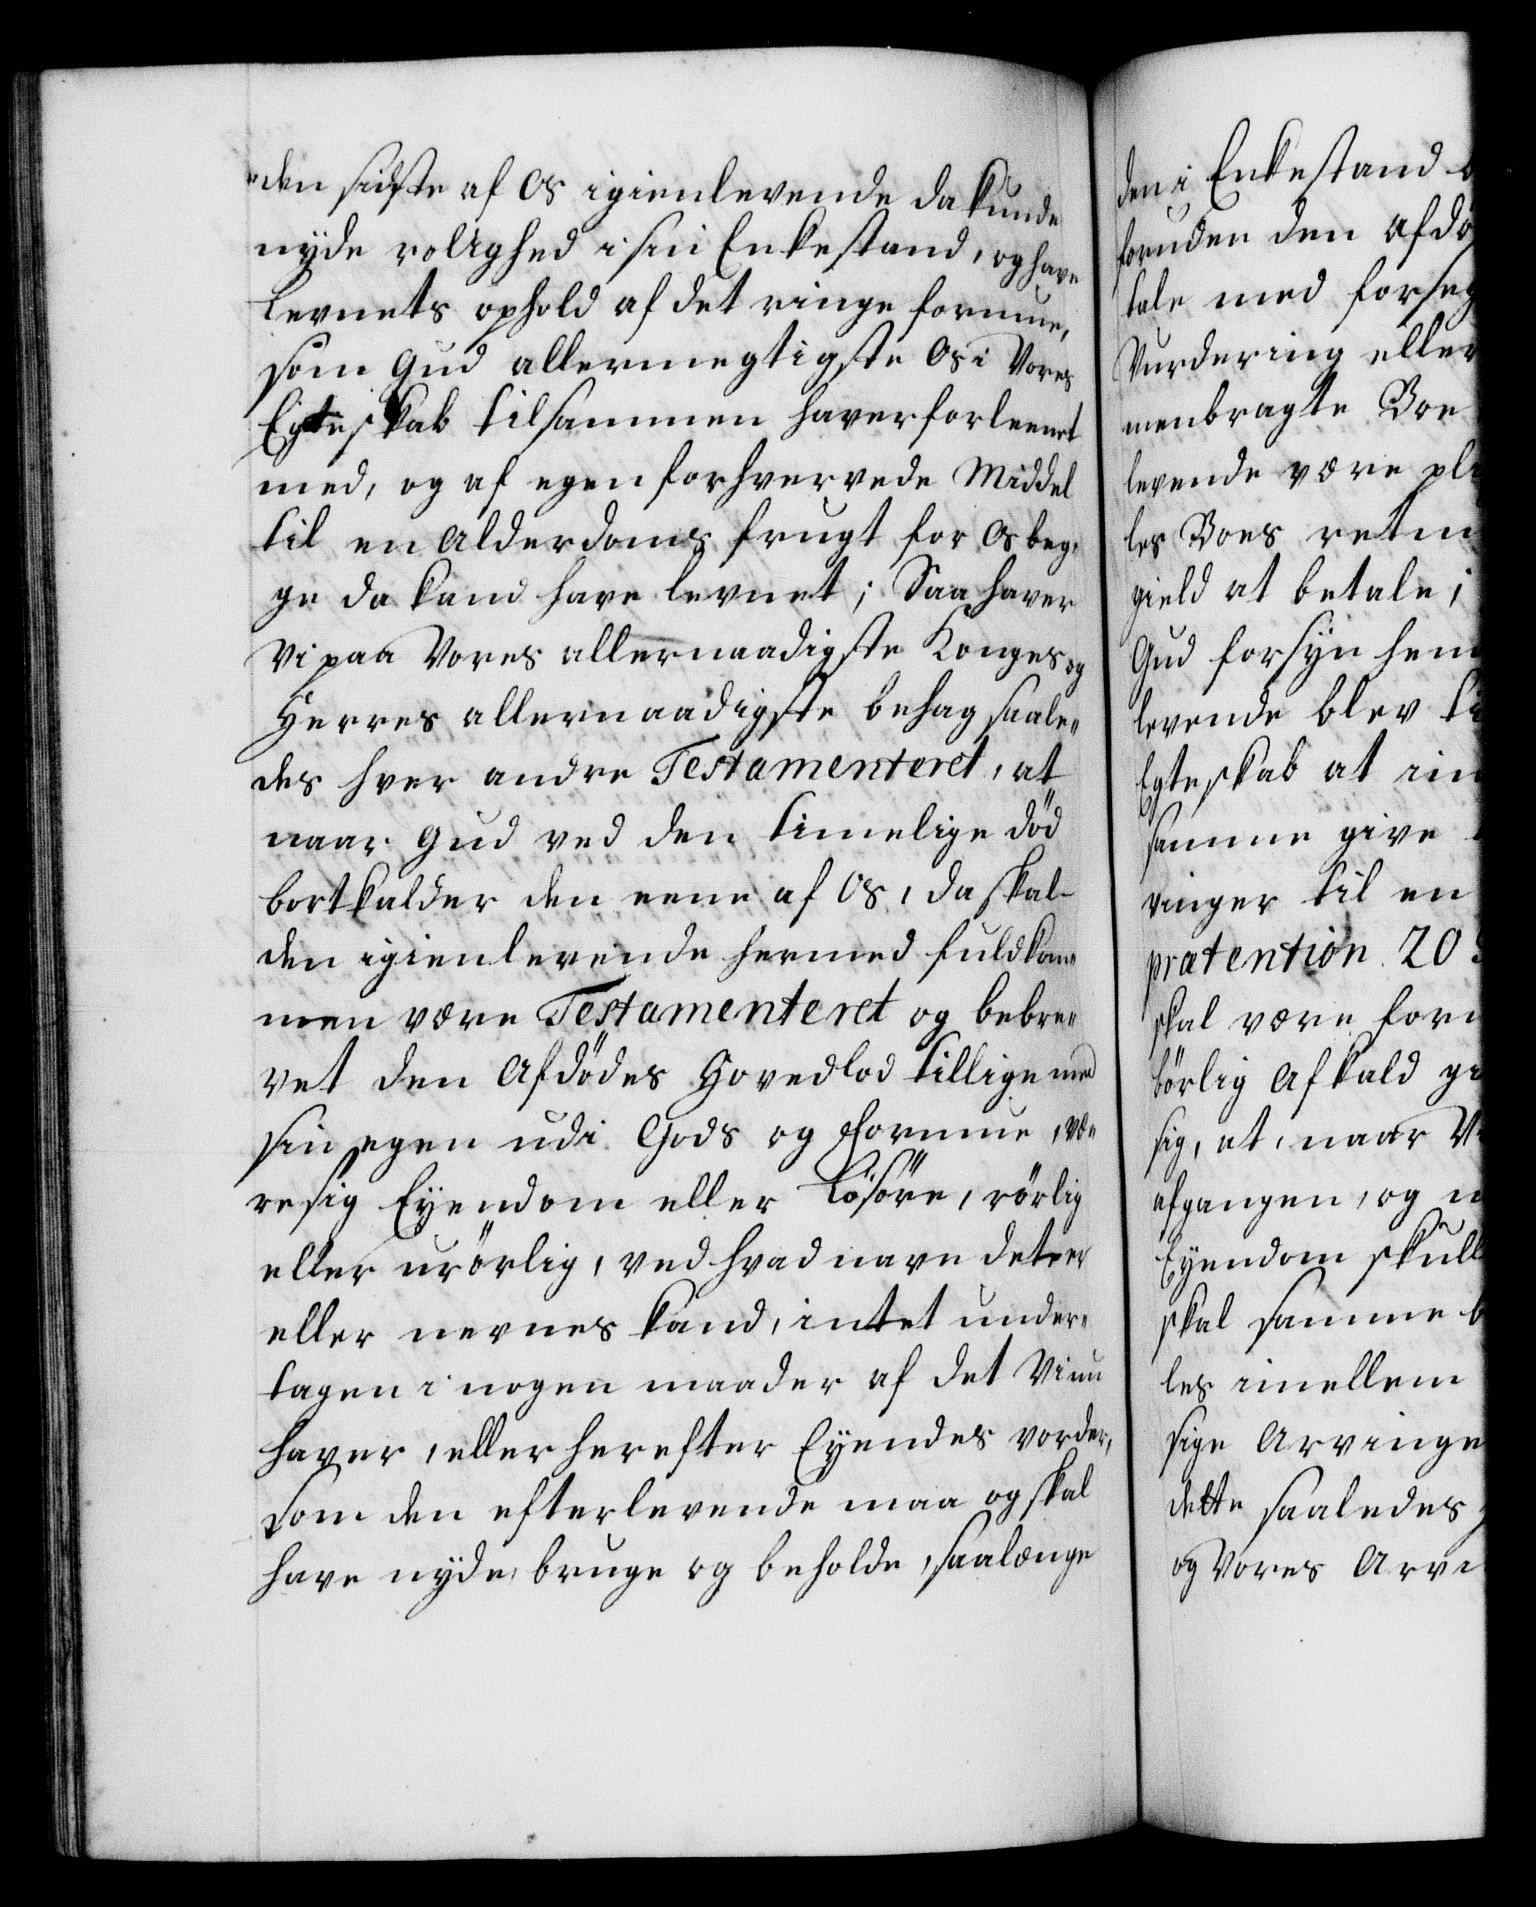 den sidste af Os igienlevende da kunde
nyde rolighed i sin Enkestand, og have
levnets ophold af det ringe formue,
som Gud allermegtigste Os i Vores
Egteskab tilsammen haver forleenet
med, og af egen forhvervede Middel
til en Alderdoms frugt for Os beg„
ge da kand have levnet; Saa haver
Vi paa Vores allernaadigste Konges og
Herres allernaadigste behag saale„
des hver andre Testamenteret, at
naar Gud ved den timelige död
bortkalder den eene af Os, da skal
den igienlevende hermed fuldkom„
men være Testamenteret og bebre„
vet den Afdödes Hovedlod tillige med
sin egen udi Gods og Formue, væ„
re sig Eyendom eller Lösöre, rörlig
eller urörlig, ved hvad navn det er
eller nevnes kand, intet under„
tagen i nogen maader af det Vi nu
haver, eller herefter Eyendes vorder,
som den efterlevende maa og skal
have nyde, bruge og beholde, saalænge
den i Enkestand
foruden den Afdö
tale med forseg
Vurdering eller
menbragte Boe
levende være pli
les Boes retm
gield at betale;
Gud forsyn hen
levende blev ti
Egteskab at in
samme give
vinger til en
prætention 20
skal være for
börlig Afkald gi
sig, at, naar V
afgangen, og
Eyendom skull
skal samme b
les imellem
sige Arvinge
dette saaledes
og Vores Arvi